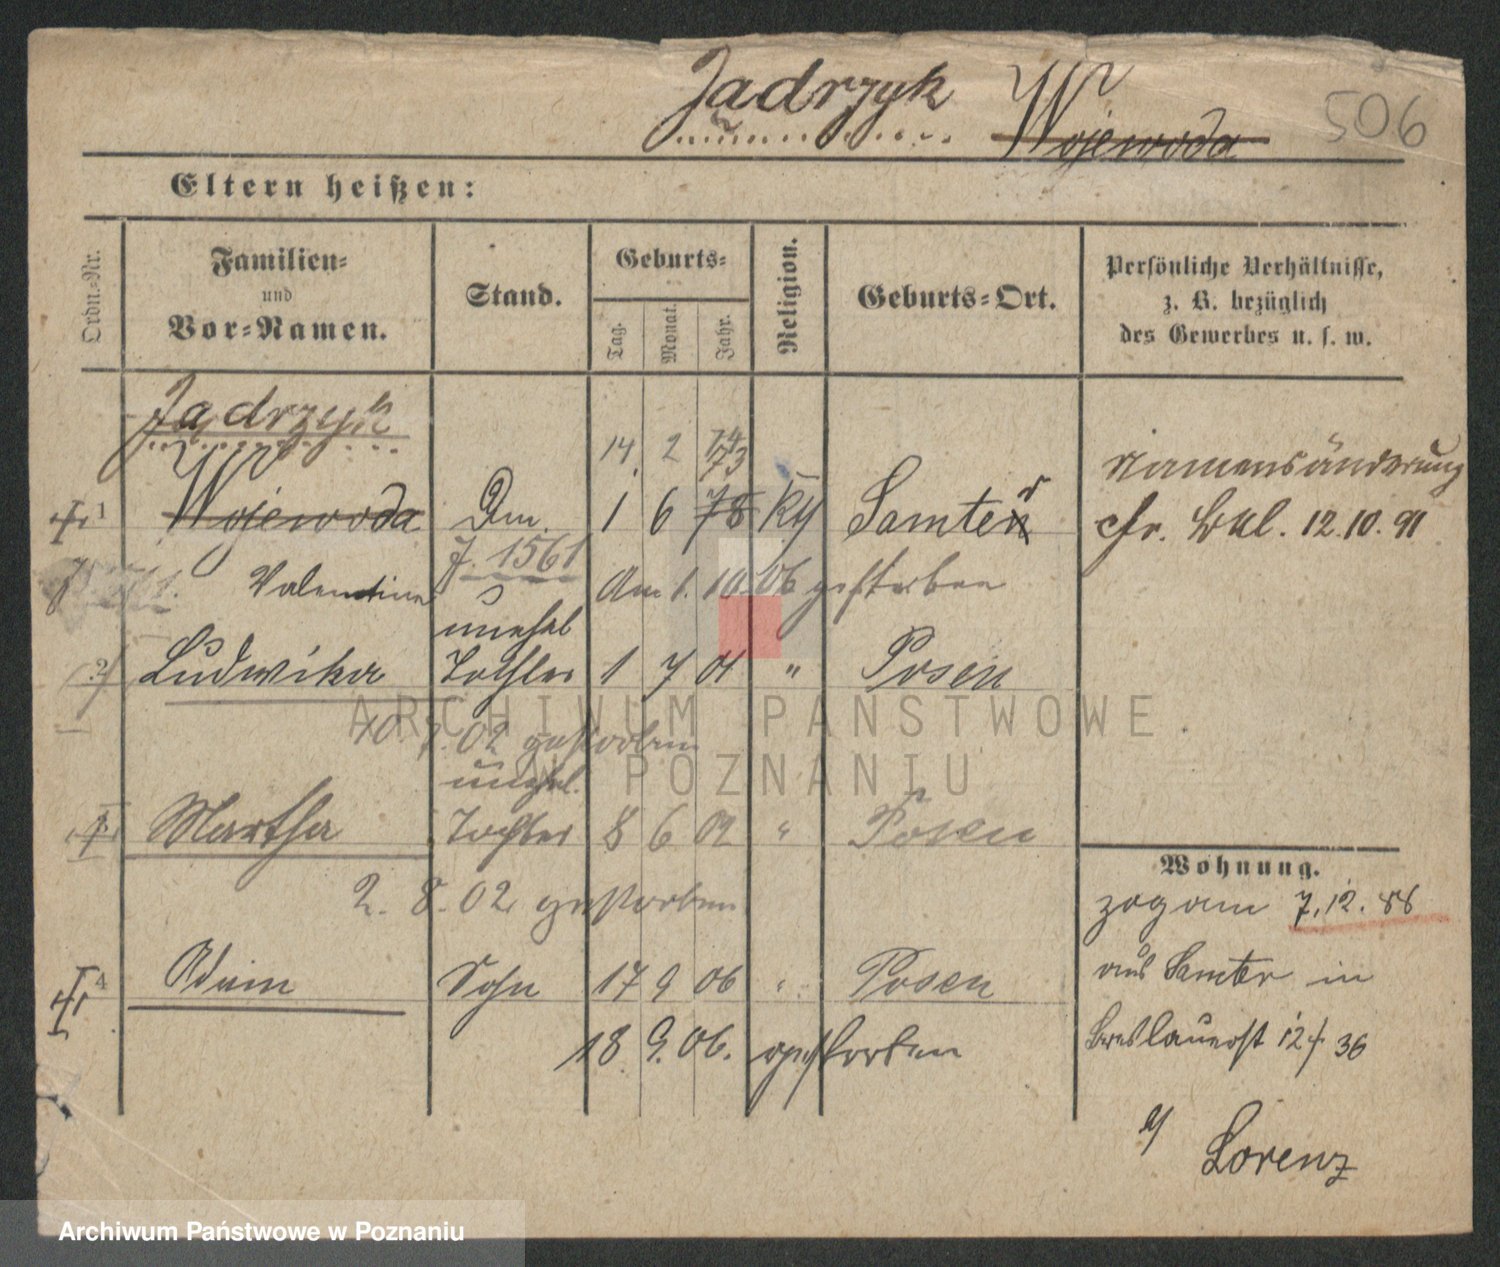 Jadrzyk Wojewoda 506
Eltern heißen:
Ordn.-Nr.
Familien-
und
Vor-Namen.
Stand.
Geburts-
Tag. Monat. Jahr.
Religion.
Geburts-Ort.
Persönliche Verhältnisse,
z. B. bezüglich
des Gewerbes u. s. w.
Jadrzyk
14. 2 74 73
Namensänderung
1 Wojewoda Dm. 1 6 78 Kth Samter
cfr. Bbl. 12.10.91
J. 1561
Valentine am 1. 10. 06 gestorben
unehel
2 Ludwika Tochter 1 7 01 " Posen
10. 02 gestorben
unehel.
Martha Tochter 8 6 02 " Posen
2. 8. 02 gestorben
4 Adam Sohn 17 9 06 " Posen
18 9. 06. gestorben
Wohnung.
zog am 7.12.88
aus Samter in
Breslauerst 12 f. 36
b/ Lorenz
ARCHIWUM PAŃSTWOWE
W POZNANIU
Archiwum Państwowe w Poznaniu